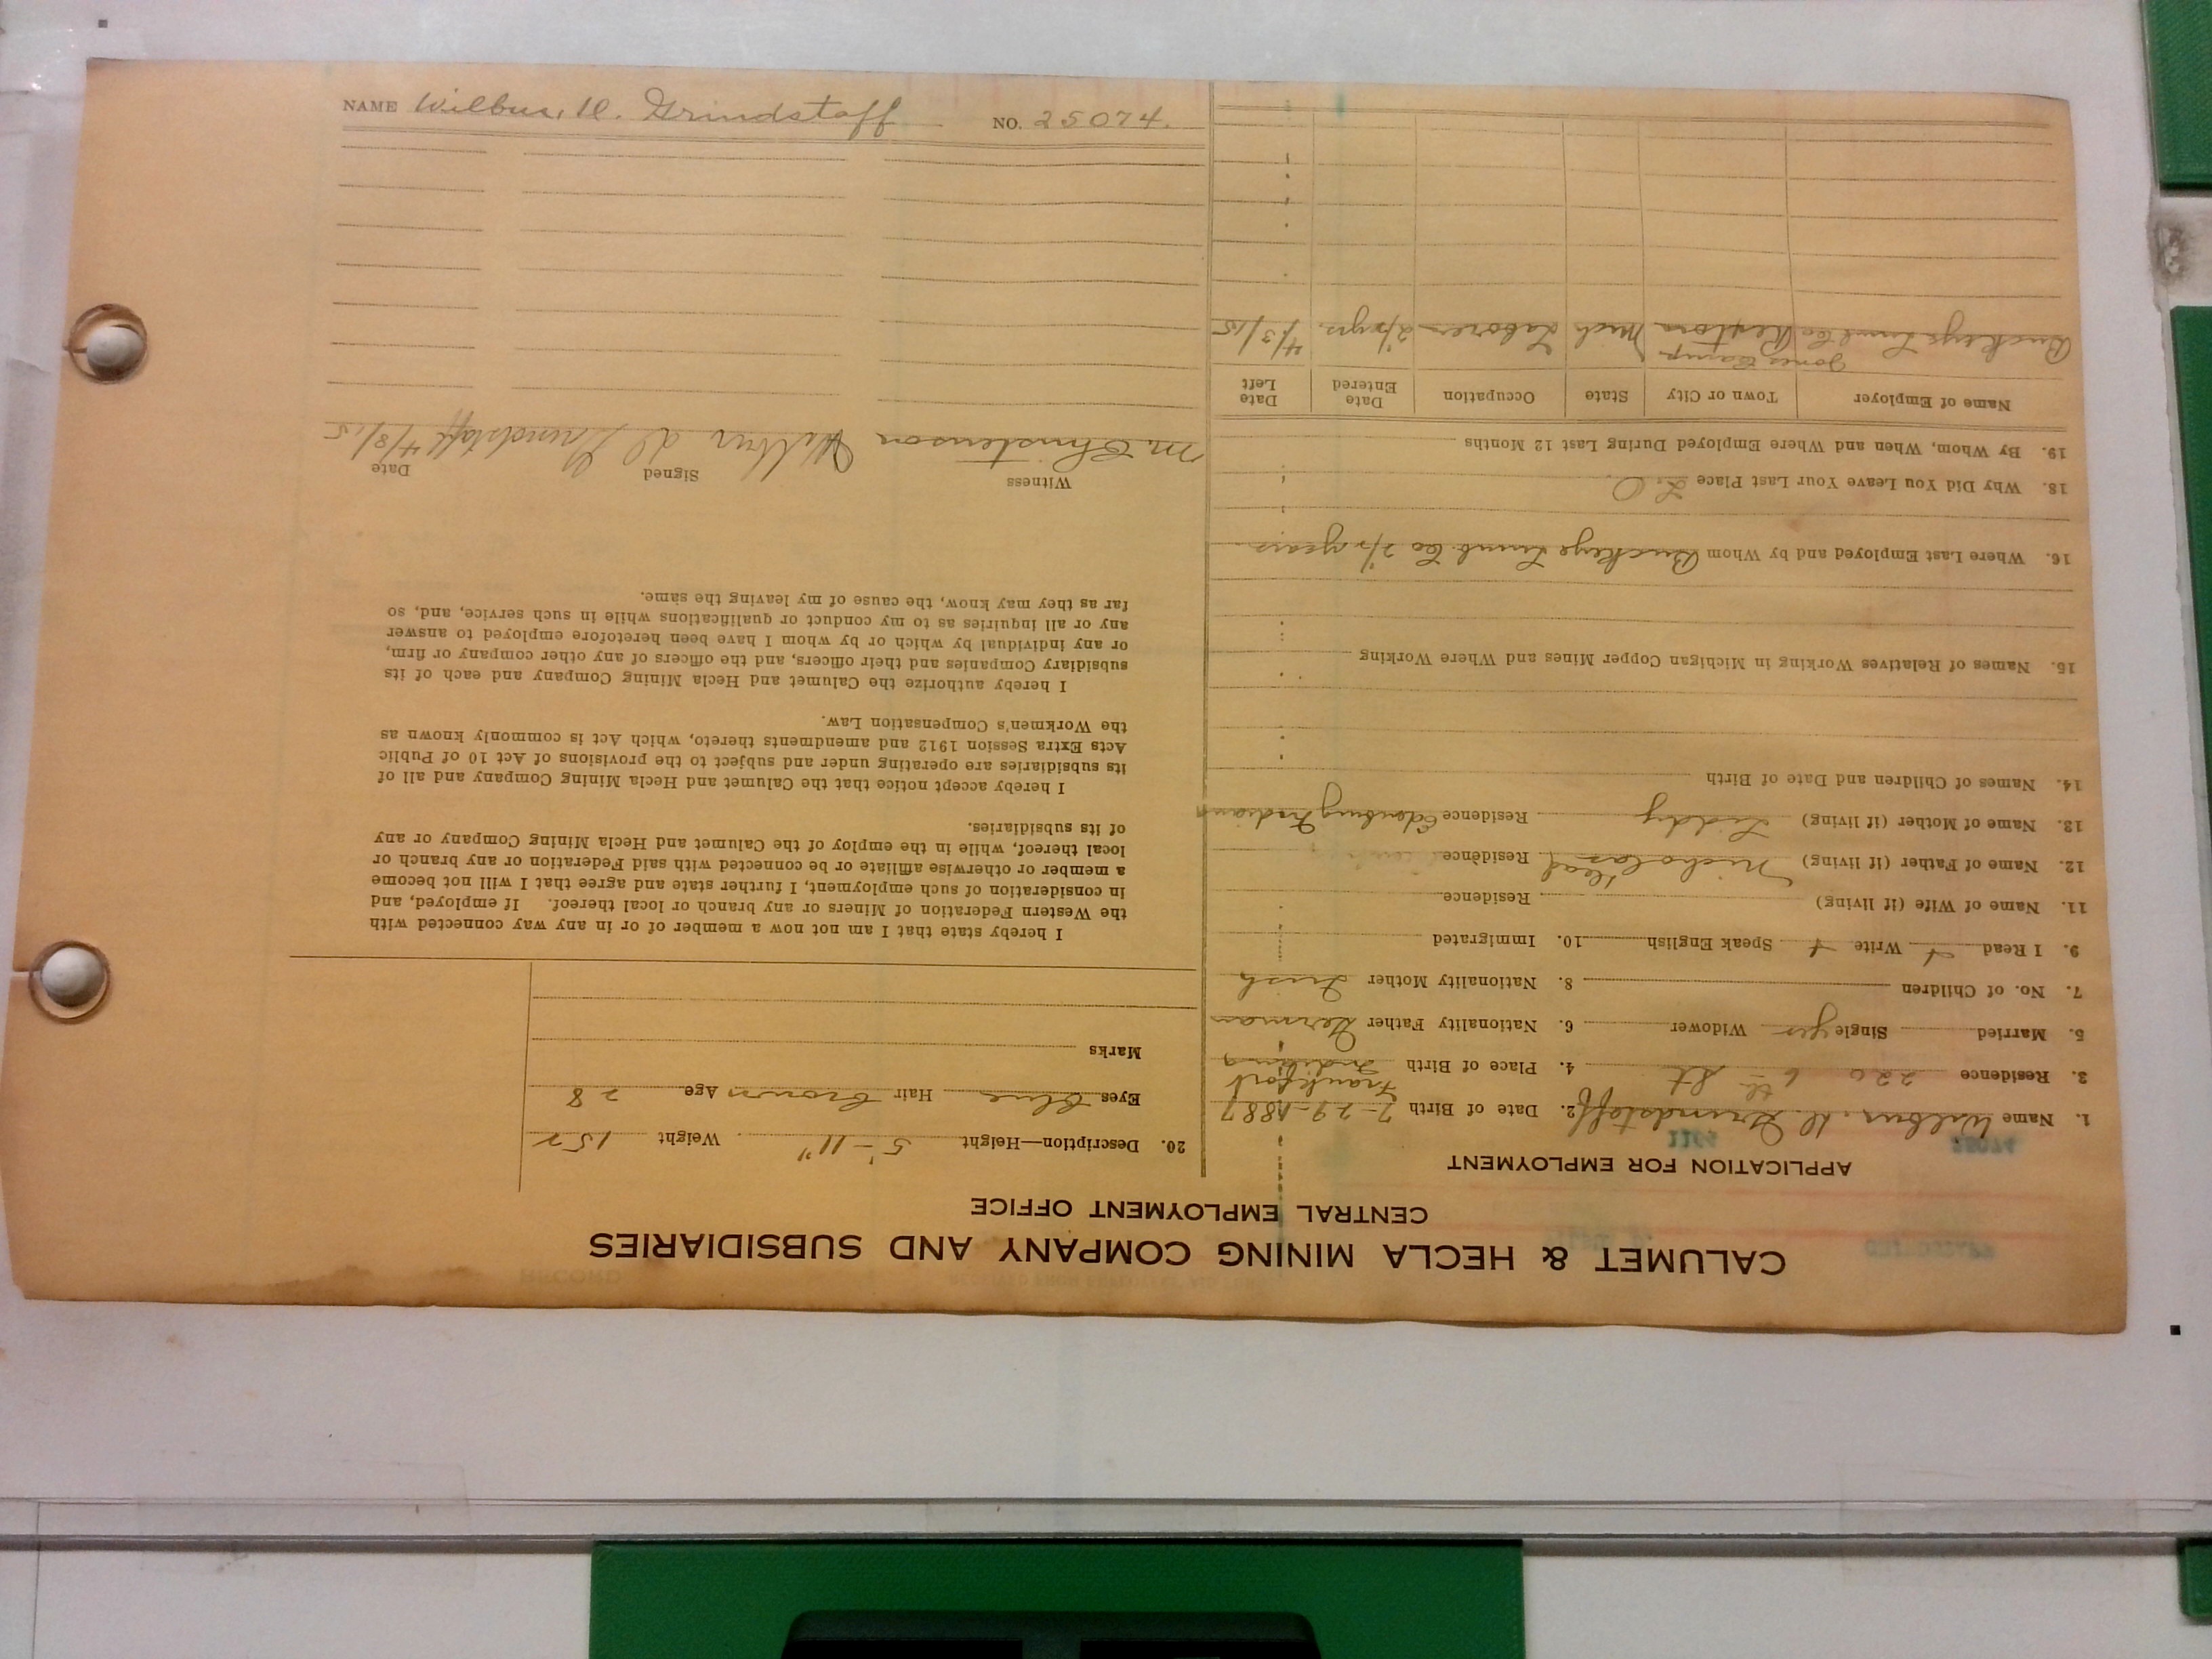 CALUMET & HECLA MINING COMPANY AND SUBSIDIARIES
CENTRAL EMPLOYMENT OFFICE
APPLICATION FOR EMPLOYMENT
25074
1. Name Wilbur D. Grindstaff 2. Date of Birth 7-29-1887
3. Residence 220 6th St 4. Place of Birth Frankfort Indiana
5. Married Single yes Widower 6. Nationality Father German
7. No. of Children 8. Nationality Mother Irish
9. I Read + Write + Speak English 10. Immigrated
11. Name of Wife (if living) Residence
12. Name of Father (if living) Nicholas Dead Residence
13. Name of Mother (if living) Liddy Residence Edenburg Indiana
14. Names of Children and Date of Birth
15. Names of Relatives Working in Michigan Copper Mines and Where Working
16. Where Last Employed and by Whom Buckeye Lumb. Co 2 1/2 years
18. Why Did You Leave Your Last Place L.O.
19. By Whom, When and Where Employed During Last 12 Months
Name of Employer Town or City State Occupation Date Entered Date Left
Jones Camp
Buckeye Lumb Co Mich Laborer 2 1/2 yrs. 4/3/15
20. Description—Height 5'-11" Weight 152
Eyes blue Hair brown Age 28
Marks
I hereby state that I am not now a member of or in any way connected with
the Western Federation of Miners or any branch or local thereof. If employed, and
in consideration of such employment, I further state and agree that I will not become
a member or otherwise affiliate or be connected with said Federation or any branch or
local thereof, while in the employ of the Calumet and Hecla Mining Company or any
of its subsidiaries.
I hereby accept notice that the Calumet and Hecla Mining Company and all of
its subsidiaries are operating under and subject to the provisions of Act 10 of Public
Acts Extra Session 1912 and amendments thereto, which Act is commonly known as
the Workmen's Compensation Law.
I hereby authorize the Calumet and Hecla Mining Company and each of its
subsidiary Companies and their officers, and the officers of any other company or firm,
or any individual by which or by whom I have been heretofore employed to answer
any or all inquiries as to my conduct or qualifications while in such service, and, so
far as they may know, the cause of my leaving the same.
Witness Signed Date
M. Christenson Wilbur D Grindstaff 4/8/15
NAME Wilbur, D. Grindstaff NO. 25074.